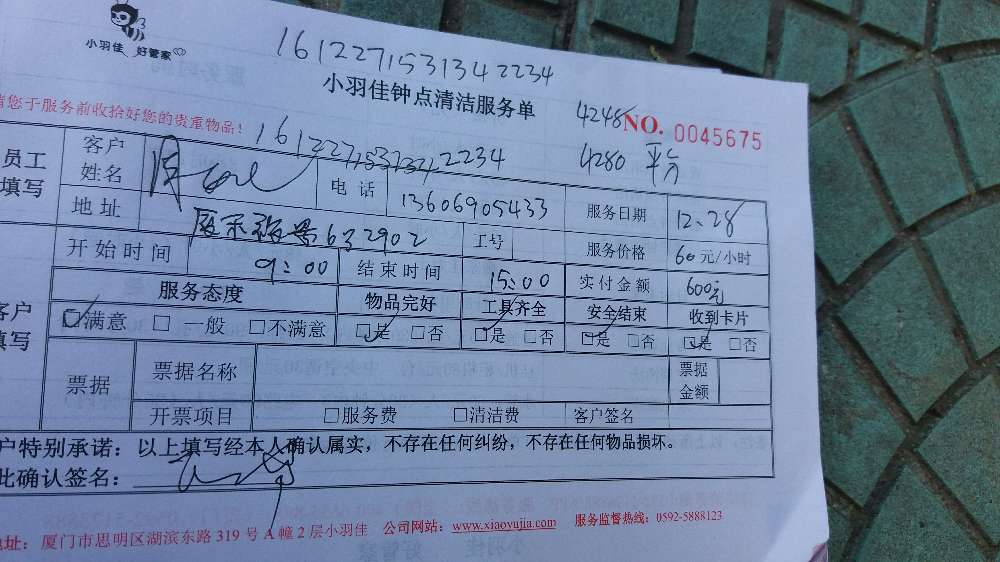 小羽佳 好管家
161227153134 2234
小羽佳钟点清洁服务单
请您于服务前收拾好您的贵重物品!
161227153134 2234
4248 NO. 0045675
4280 平方
员工填写
客户姓名 电话 13606905433 服务日期 12.28
地址 632902 工号 服务价格 60元/小时
开始时间 9:00 结束时间 15:00 实付金额 600元
客户填写
服务态度 物品完好 工具齐全 安全结束 收到卡片
☑满意 □一般 □不满意 ☑是 □否 ☑是 □否 ☑是 □否 ☑是 □否
票据 票据名称 票据金额
开票项目 □服务费 □清洁费 客户签名
户特别承诺:以上填写经本人确认属实,不存在任何纠纷,不存在任何物品损坏。
此确认签名:
地址:厦门市思明区湖滨东路 319 号 A 幢 2 层小羽佳 公司网站:www.xiaoyujia.com 服务监督热线:0592-5888123